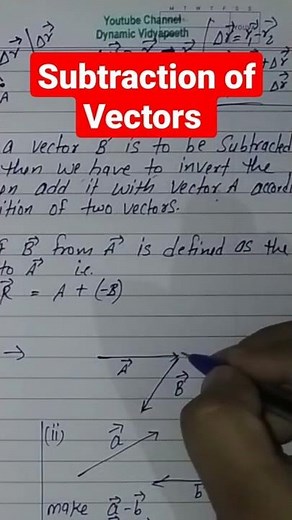 Youtube Channel
Dynamic Vidyapeeth
Subtraction of
Vectors
a vector B is to be Subtracted
then we have to invert the
on add it with vector A accord
ition of two vectors.
B⃗ from A⃗ is defined as the
to A⃗ i.e.
R⃗ = A + (-B)
→ A⃗ B⃗
(ii) a⃗
b⃗
make a⃗ - b⃗